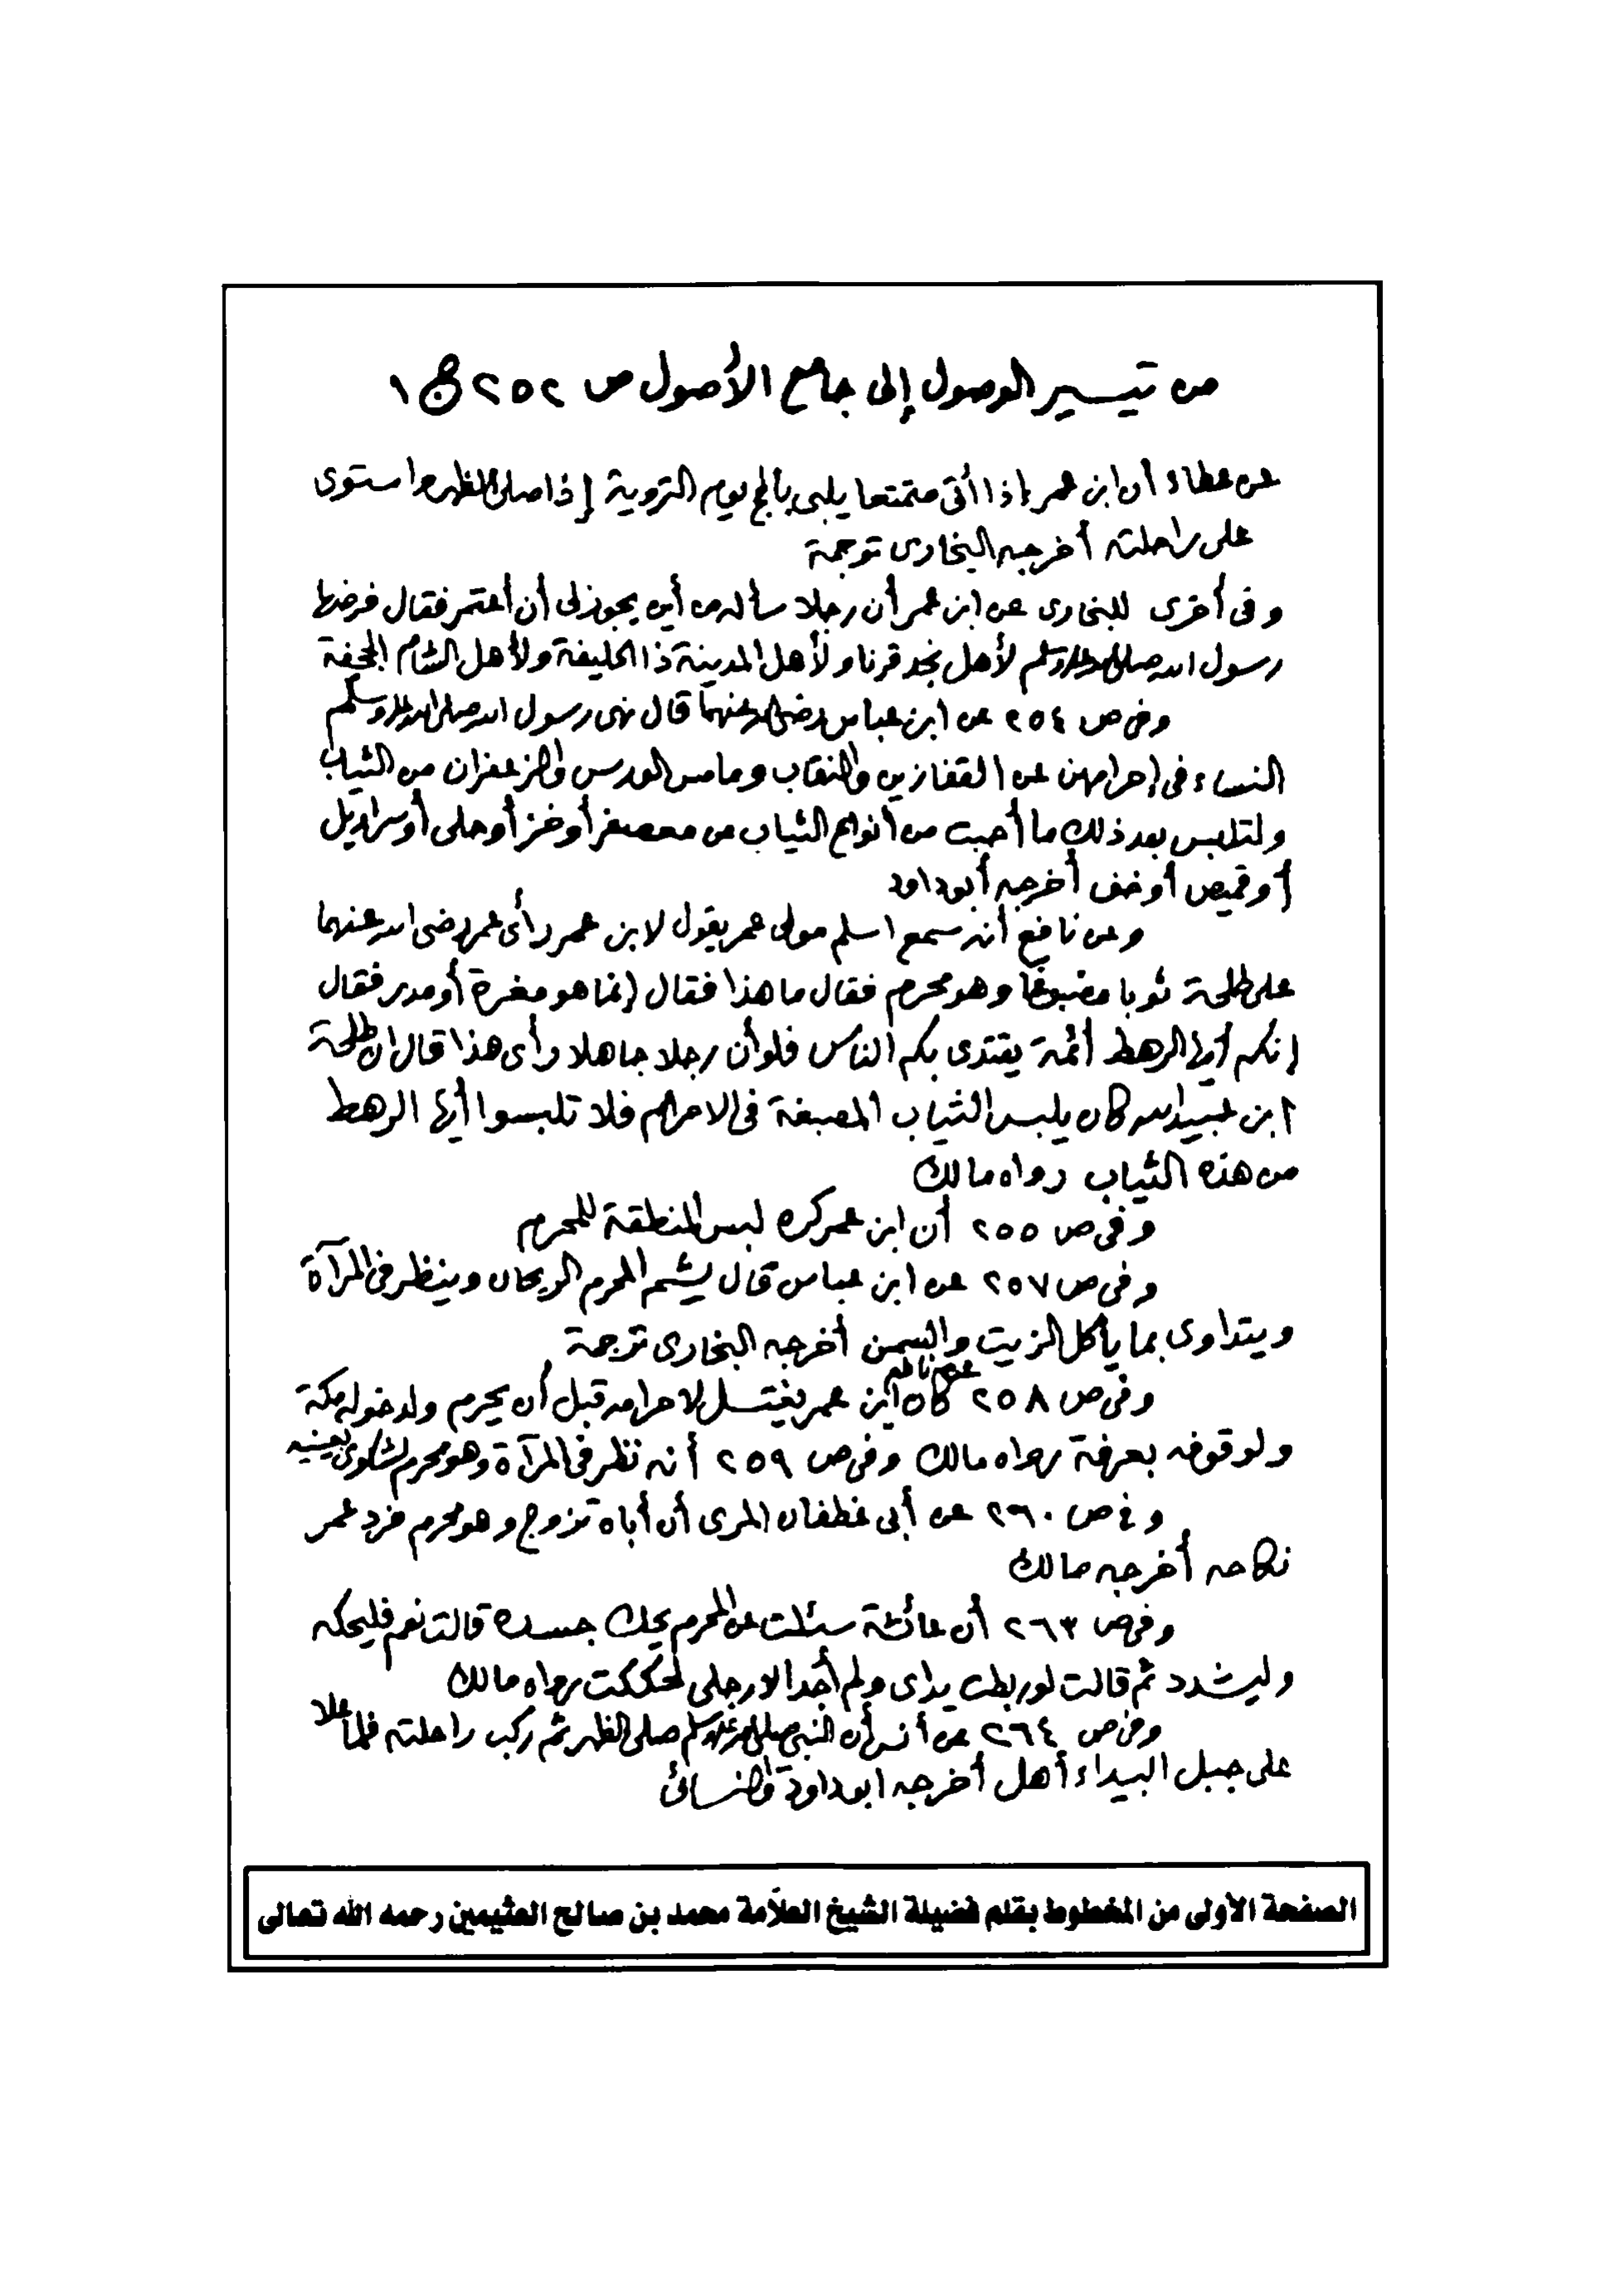 من تيسير الوصول إلى جامع الأصول ص ٢٥٢ ج ١
عن عطاء أن ابن عمر إذا أتى متمتعا يلبي بالحج يوم التروية إذا صلى الظهر واستوى
على راحلته أخرجه البخارى ترجمة
وفى أخرى للبخارى عن ابن عمر أن رجلا سأله من أين يجوز لى أن أعتمر فقال فرضها
رسول الله صلى الله عليه وسلم لأهل نجد قرنا ولأهل المدينة ذا الحليفة ولأهل الشام الجحفة
وفى ص ٢٥٤ عن ابن عباس رضى الله عنهما قال نهى رسول الله صلى الله عليه وسلم
النساء فى إحرامهن عن القفازين والنقاب وما مس الورس والزعفران من الثياب
ولتلبس بعد ذلك ما أحبت من أنواع الثياب من معصفر أو خز أو حلى أو سراويل
أو قميص أو خف أخرجه أبو داود
وعن نافع أنه سمع اسلم مولى عمر يقول لابن عمر رأى عمر رضى الله عنهما
على طلحة ثوبا مصبوغا وهو محرم فقال ما هذا فقال إنما هو مغرة أو مدر فقال
إنكم أيها الرهط أئمة يقتدى بكم الناس فلو أن رجلا جاهلا رأى هذا قال ان طلحة
ابن عبيد الله كان يلبس الثياب المصبغة فى الاحرام فلا تلبسوا أيها الرهط
من هذه الثياب رواه مالك
وفى ص ٢٥٥ أن ابن عمر كره لبس المنطقة للمحرم
وفى ص ٢٥٧ عن ابن عباس قال يشم المحرم الريحان وينظر فى المرآة
ويتداوى بما يأكل الزيت والسمن أخرجه البخارى ترجمة
وفى ص ٢٥٨ عن نافع كان ابن عمر يغتسل لاحرامه قبل أن يحرم ولدخوله مكة
ولوقوفه بعرفة رواه مالك وفى ص ٢٥٩ أنه نظر فى المرآة وهو محرم لشكوى بعينيه
وفى ص ٢٦٠ عن أبى غطفان المرى أن أباه تزوج وهو محرم فرد عمر
نكاحه أخرجه مالك
وفى ص ٢٦٣ أن عائشة سئلت عن المحرم يحك جسده قالت نعم فليحكه
وليشدد ثم قالت لو ربطت يداى ولم أجد الا رجلى لحككت رواه مالك
وفى ص ٢٦٤ عن أنس أن النبى صلى الله عليه وسلم صلى الظهر ثم ركب راحلته فلما علا
على جبل البيداء أهل أخرجه ابو داود والنسائى
الصفحة الأولى من المخطوط بقلم فضيلة الشيخ العلاَّمة محمد بن صالح العثيمين رحمه الله تعالى